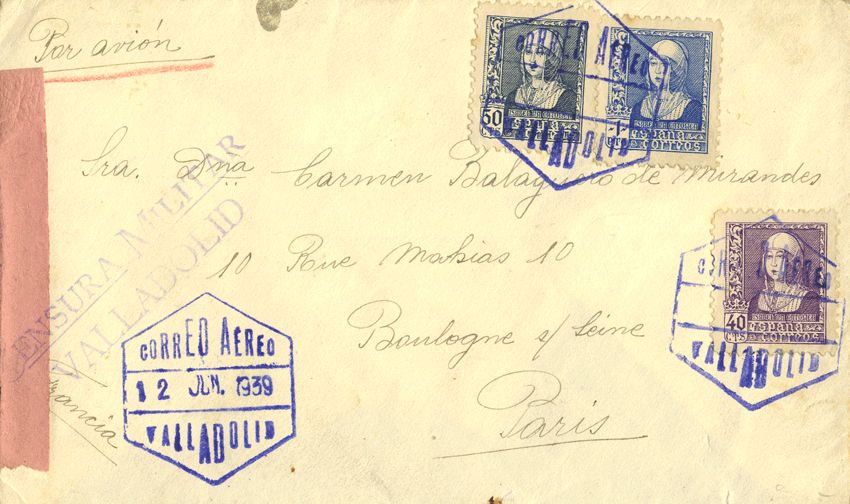 Por avión
CORREO AEREO
VALLADOLID
50
CTS
ESPAÑA
CORREOS
1
PTS
ISABEL LA CATOLICA
ESPAÑA
CORREOS
CENSURA MILITAR
VALLADOLID
Sra. Dna Carmen Balaguero de Mirandes
10 Rue Mahias 10
Boulogne s/ Seine
Paris
Francia
CORREO AEREO
12 JUN. 1939
VALLADOLID
CORREO AEREO
VALLADOLID
40
CTS
ISABEL LA CATOLICA
ESPAÑA
CORREOS